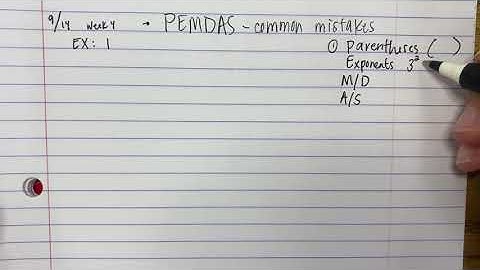 9/14 week 4 → PEMDAS - common mistakes
EX: 1
① Parentheses ( )
Exponents 3²
M/D
A/S